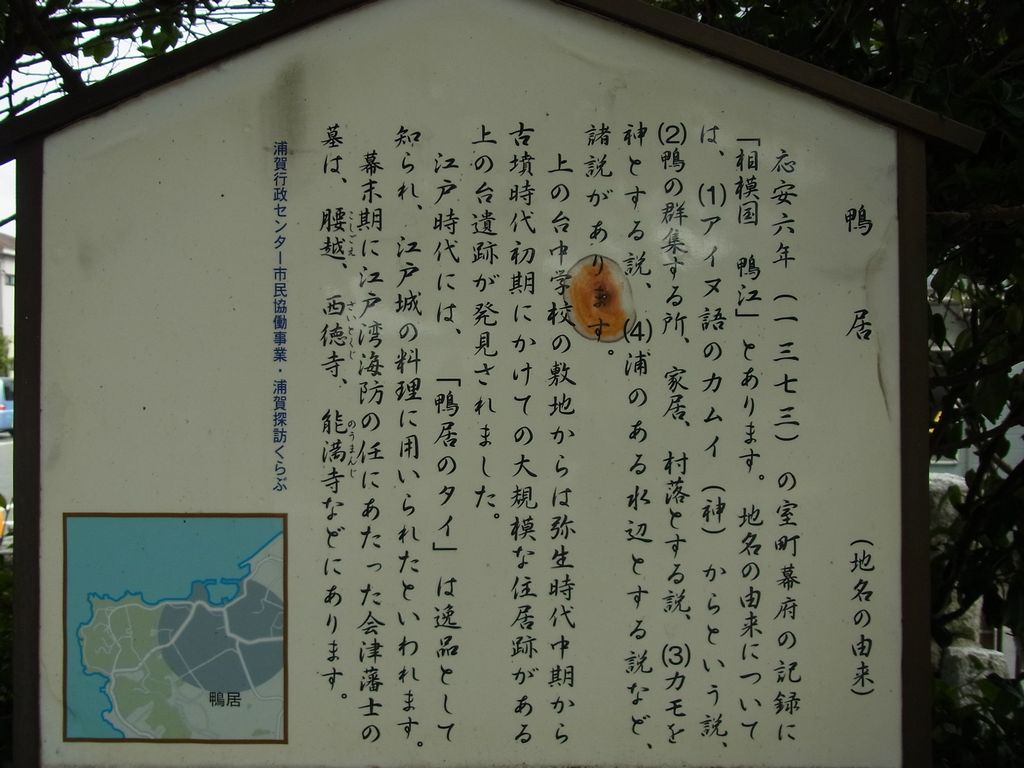 鴨居 (地名の由来)
応安六年(一三七三)の室町幕府の記録に
「相模国 鴨江」とあります。地名の由来について
は、(1)アイヌ語のカムイ(神)からという説、
(2)鴨の群集する所、家居、村落とする説、(3)カモを
神とする説、(4)浦のある水辺とする説など、
諸説があります。
上の台中学校の敷地からは弥生時代中期から
古墳時代初期にかけての大規模な住居跡がある
上の台遺跡が発見されました。
江戸時代には、「鴨居のタイ」は逸品として
知られ、江戸城の料理に用いられたといわれます。
幕末期に江戸湾海防の任にあたった会津藩士の
墓は、腰越、西徳寺、能満寺などにあります。
こしごえ さいとくじ のうまんじ
浦賀行政センター市民協働事業・浦賀探訪くらぶ
鴨居